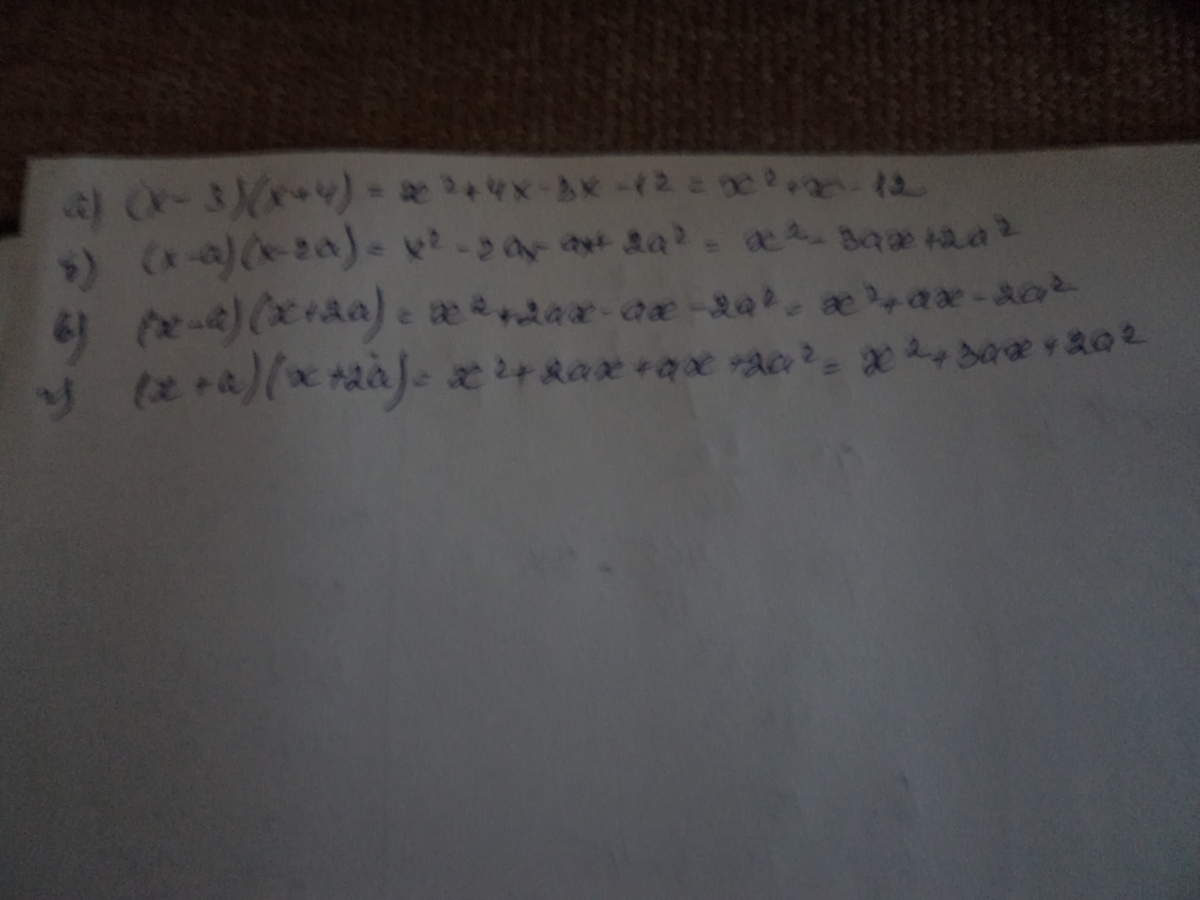 а) (x-3)(x+4) = x²+4x-3x-12 = x²+x-12
б) (x-a)(x-2a) = x²-2ax-ax+2a² = x²-3ax+2a²
в) (x-a)(x+2a) = x²+2ax-ax-2a² = x²+ax-2a²
г) (x+a)(x+2a) = x²+2ax+ax+2a² = x²+3ax+2a²